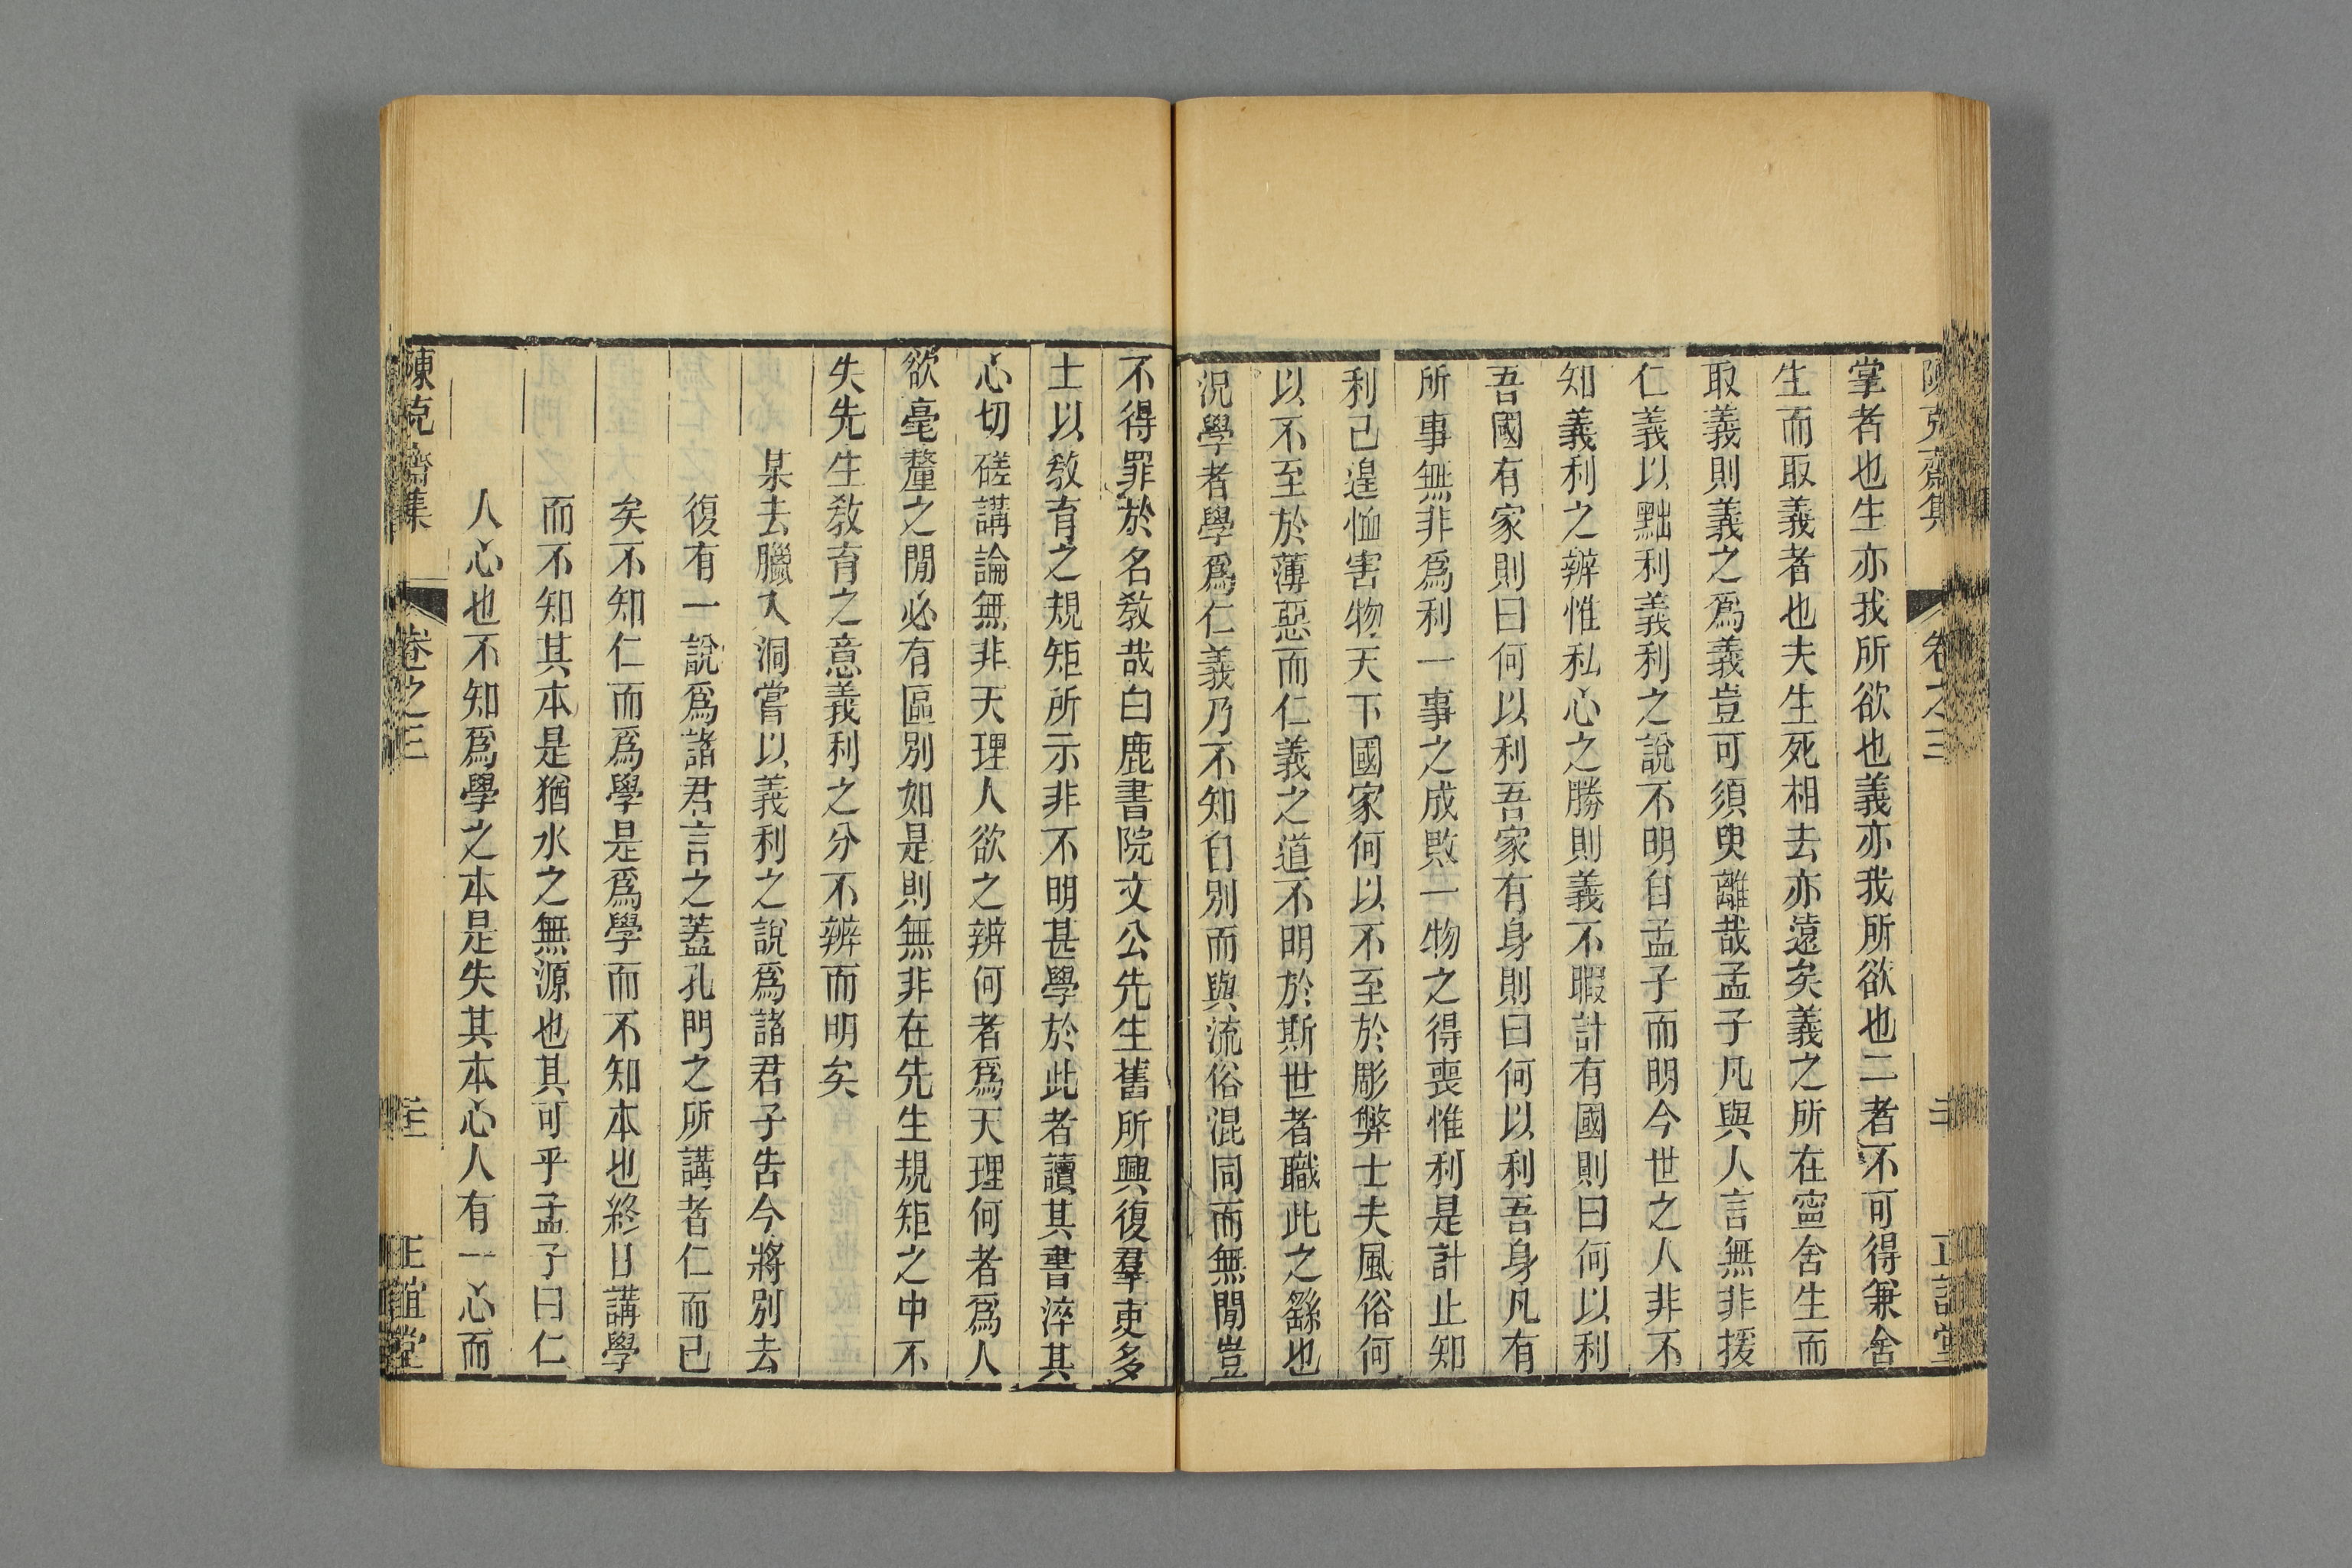 陳克齋集 卷之三 正誼堂
掌者也生亦我所欲也義亦我所欲也二者不可得兼舍
生而取義者也夫生死相去亦遠矣義之所在寧舍生而
取義則義之爲義豈可須臾離哉孟子凡與人言無非援
仁義以黜利義利之說不明自孟子而明今世之人非不
知義利之辨惟私心之勝則義不暇計有國則曰何以利
吾國有家則曰何以利吾家有身則曰何以利吾身凡有
所事無非爲利一事之成敗一物之得喪惟利是計止知
利己遑恤害物天下國家何以不至於彫弊士夫風俗何
以不至於薄惡而仁義之道不明於斯世者職此之繇也
況學者學爲仁義乃不知自別而與流俗混同而無閒豈
不得罪於名敎哉白鹿書院文公先生舊所興復羣吏多
士以敎育之規矩所示非不明甚學於此者讀其書淬其
心切磋講論無非天理人欲之辨何者爲天理何者爲人
欲毫釐之閒必有區別如是則無非在先生規矩之中不
失先生敎育之意義利之分不辨而明矣
某去臘入洞嘗以義利之說爲諸君子告今將別去
復有一說爲諸君言之蓋孔門之所講者仁而已
矣不知仁而爲學是爲學而不知本也終日講學
而不知其本是猶水之無源也其可乎孟子曰仁
人心也不知爲學之本是失其本心人有一心而
陳克齋集 卷之三 正誼堂